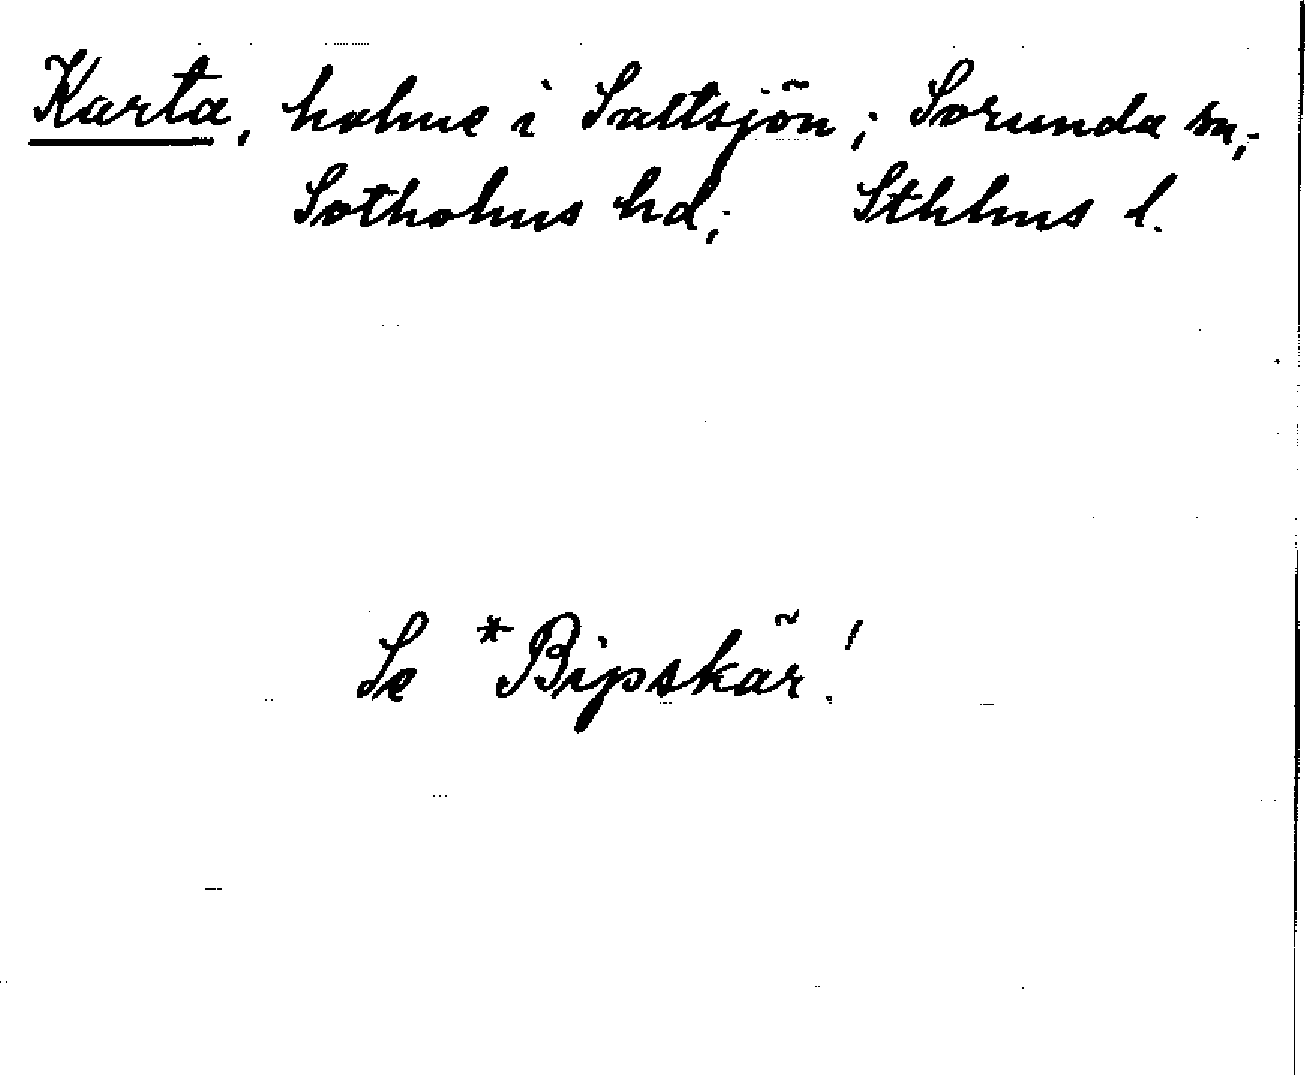 Karta, holme i Saltsjön; Sorunda sn;
Sotholms hd; Sthlms l.
Se *Bipskär!